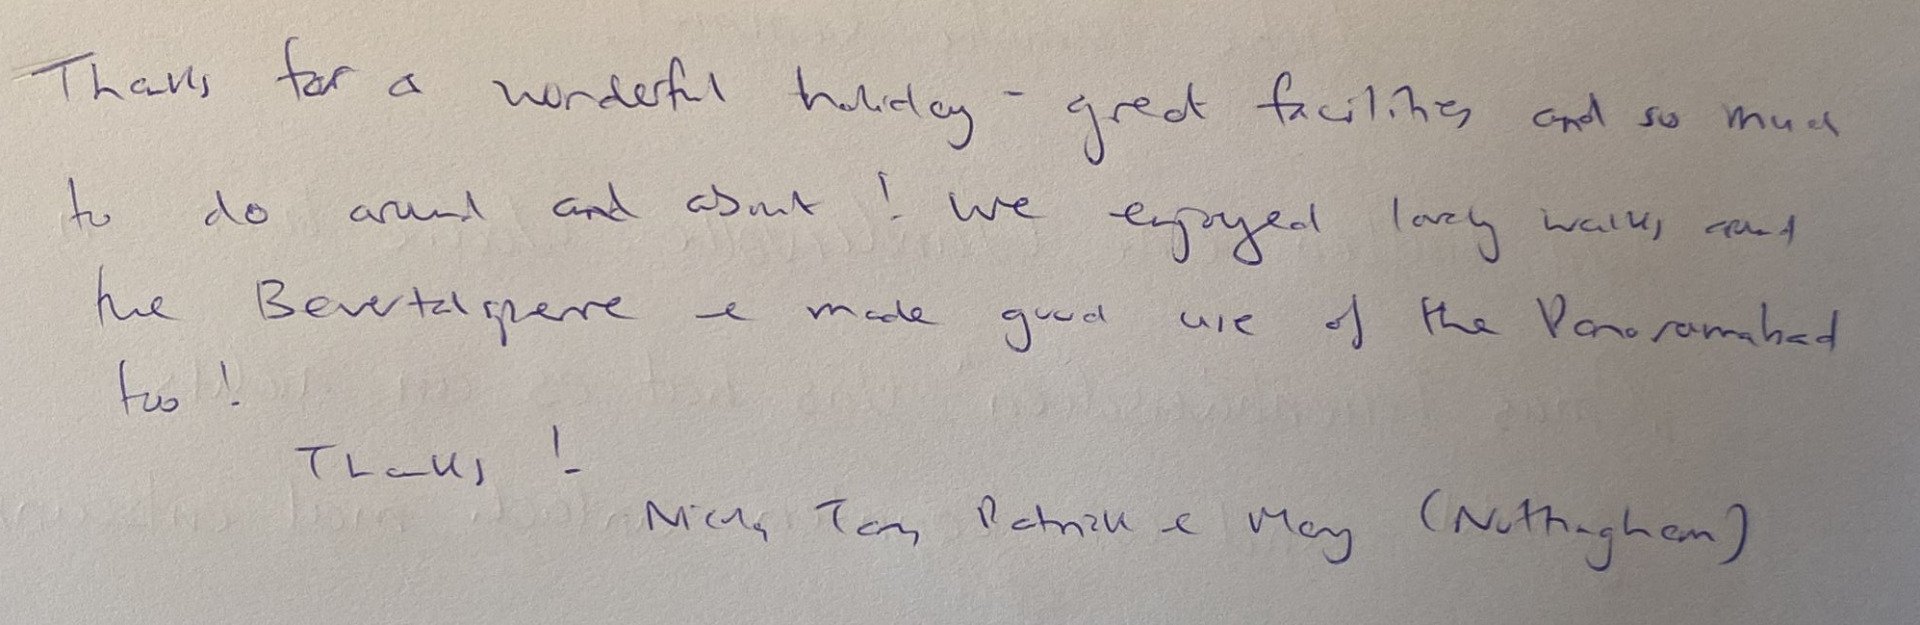 Thanks for a wonderful holiday - great facilities and so much
to do around and about! We enjoyed lovely walks around
the Bevertalsperre & made good use of the Panoramabad
too!
Thanks!
Nicky, Tony, Patrick & May (Nottingham)